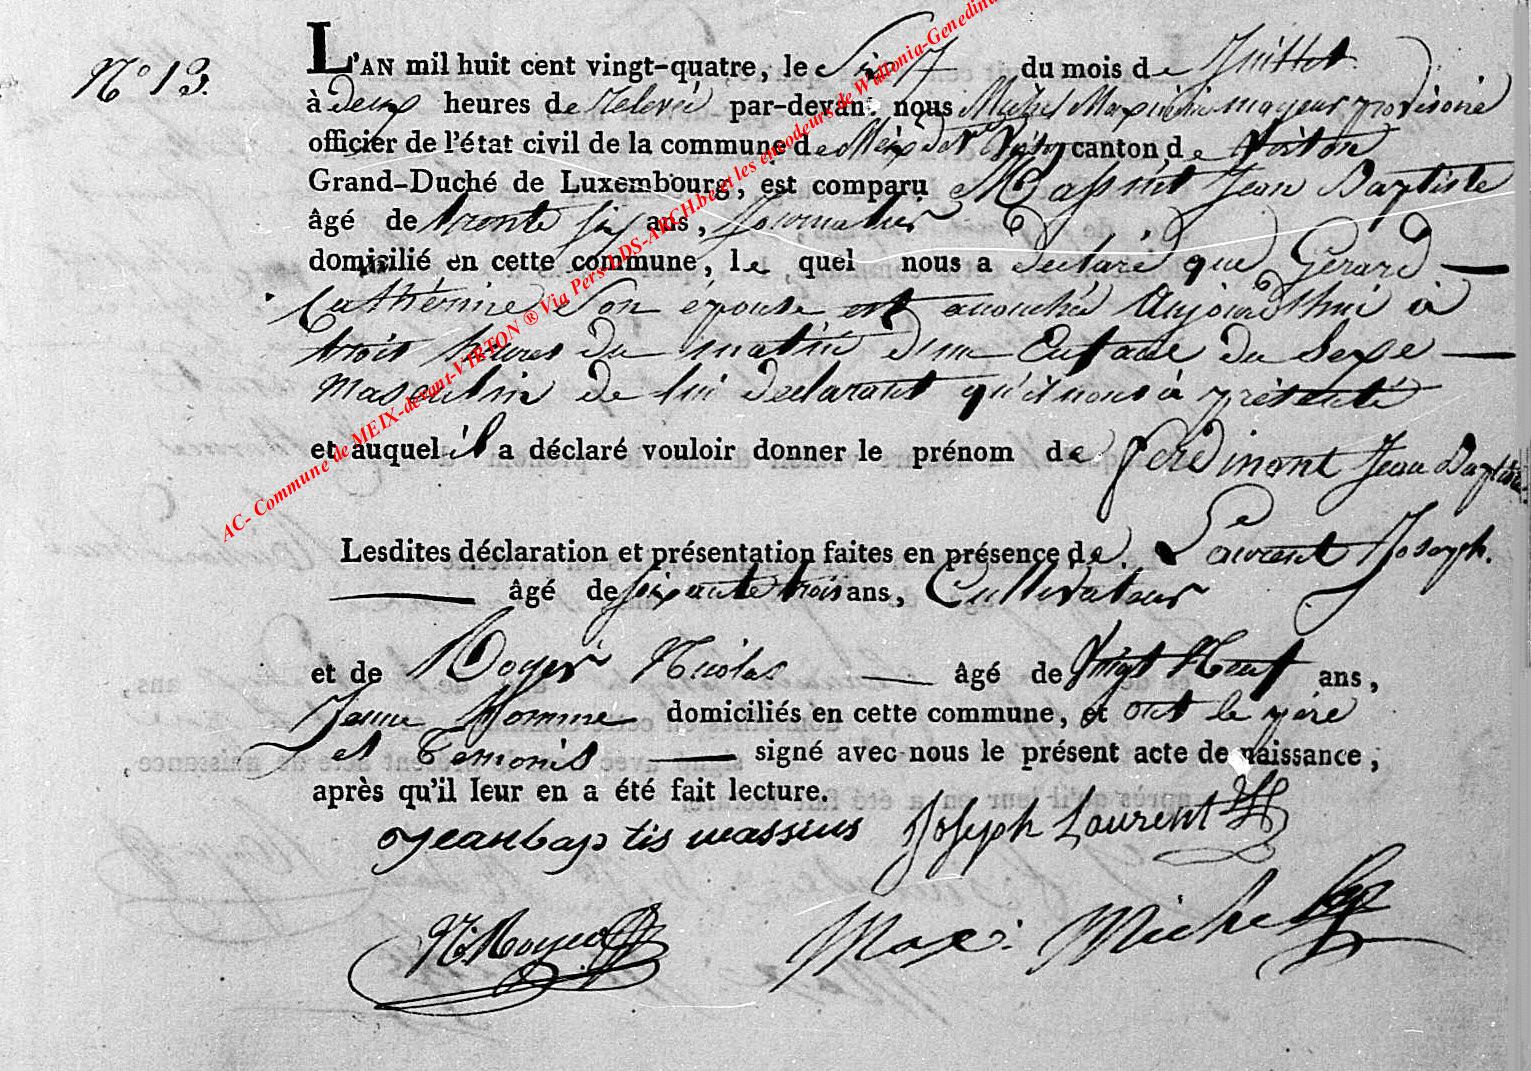 N° 13.
L'AN mil huit cent vingt-quatre, le Six du mois de Juillet
à deux heures de relevée par-devant nous Michel Maximin mayeur provisoire
officier de l'état civil de la commune de Meix dvt Virton canton de Virton
Grand-Duché de Luxembourg, est comparu Massint Jean Baptiste
âgé de trente six ans, Journalier
domicilié en cette commune, le quel nous a déclaré que Gerard
Cathérine Son épouse est acouchée Aujourdhui à
trois heures du matin d'un Enfant du Sexe
Masculin de lui déclarant qu'il nous à présenté
et auquel il a déclaré vouloir donner le prénom de Ferdinont Jean Baptiste
Lesdites déclaration et présentation faites en présence de Laurent Joseph.
âgé de soixante trois ans, Cultivateur
et de Roger Nicolas âgé de Vingt Neuf ans,
Jeune Homme domiciliés en cette commune, et ont le père
et Temoins signé avec nous le présent acte de naissance;
après qu'il leur en a été fait lecture.
Jean bap tis massius Joseph Laurent
N. Max: Michel
AC- Commune de MEIX-devant-VIRTON ® Via Pers-LDS-ARCH.be et les encodeurs de Wallonia-Genedina